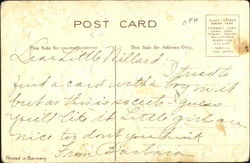 POST CARD
OPH
This Side for correspondence
This Side for Address Only.
Dear Little Willard.
I tried to
find a card with a boy on it
but as this is so cute I guess
you'll like it. Little girl are
nice too don't you think
From Barbara
Printed in Germany